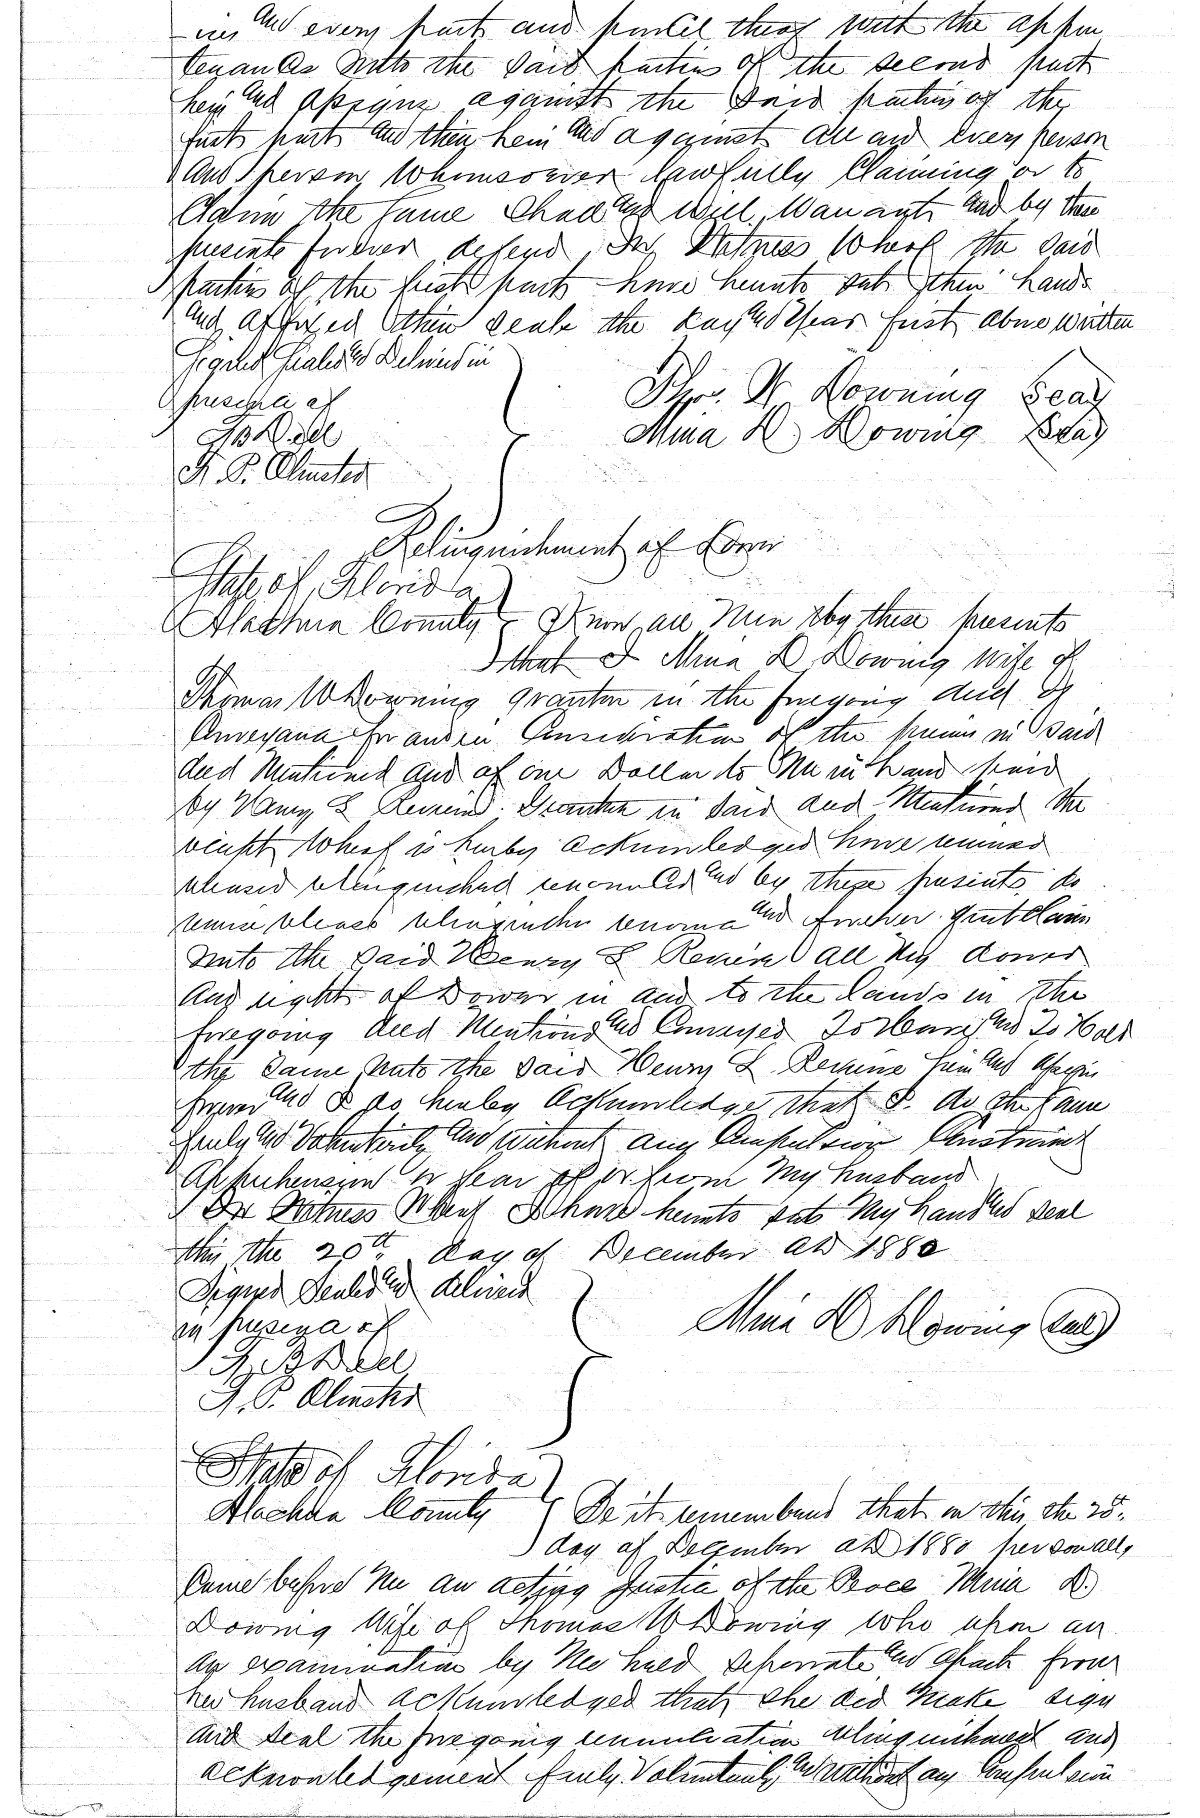 ises and every part and parcel therof with the appur
tenances unto the said parties of the second part
heirs and assigns against the said parties of the
first part and their heirs and against all and every person
and person whomsoever lawfully Claiming or to
Claim the same Shall and will Warrant and by these
presents forever defend In Witness Wherof the said
parties of the first part have hereunto set their hands
and affixed their seals the day and year first above written
Signed Sealed and Delivered in
presence of
Thos. W Downing Seal
Mina D Downing Seal
Relinquishment of Dower
State of Florida
Alachua County Know all Men by these presents
that I Mina D Downing wife of
Thomas W Downing grantor in the foregoing deed of
Conveyance for and in Consideration of the premises in said
deed Mentioned and of one Dollar to Me in hand paid
by Henry L Grantee in said deed Mentioned the
receipt Wherof is hereby acknowledged have remised
released relinquished renounced and by these presents do
remise release relinquish renounce and forever quitclaim
unto the said Henry L all My dower
and right of Dower in and to the lands in the
foregoing deed Mentioned and Conveyed To Have and To Hold
the same unto the said Henry L heirs and assigns
forever and I do hereby Acknowledge that I do the same
freely and Voluntarily and without any Compulsion Constraint
Apprehension or fear of or from My husband
In Witness Wherof I have hereunto set My hand and seal
this the 20th day of December AD 1880
Signed Sealed and delivered
in presence of
Mina D Downing (Seal)
State of Florida
Alachua County Be it remembered that on this the 20th.
day of December AD 1880 personally
Came before Me an acting Justice of the Peace Mina D.
Downing Wife of Thomas W Downing Who upon an
an examination by Me held seperate and apart from
her husband acknowledged that she did Make sign
and seal the foregoing renunciation relinquishment and
acknowledgement freely Voluntarily and without any Compulsion